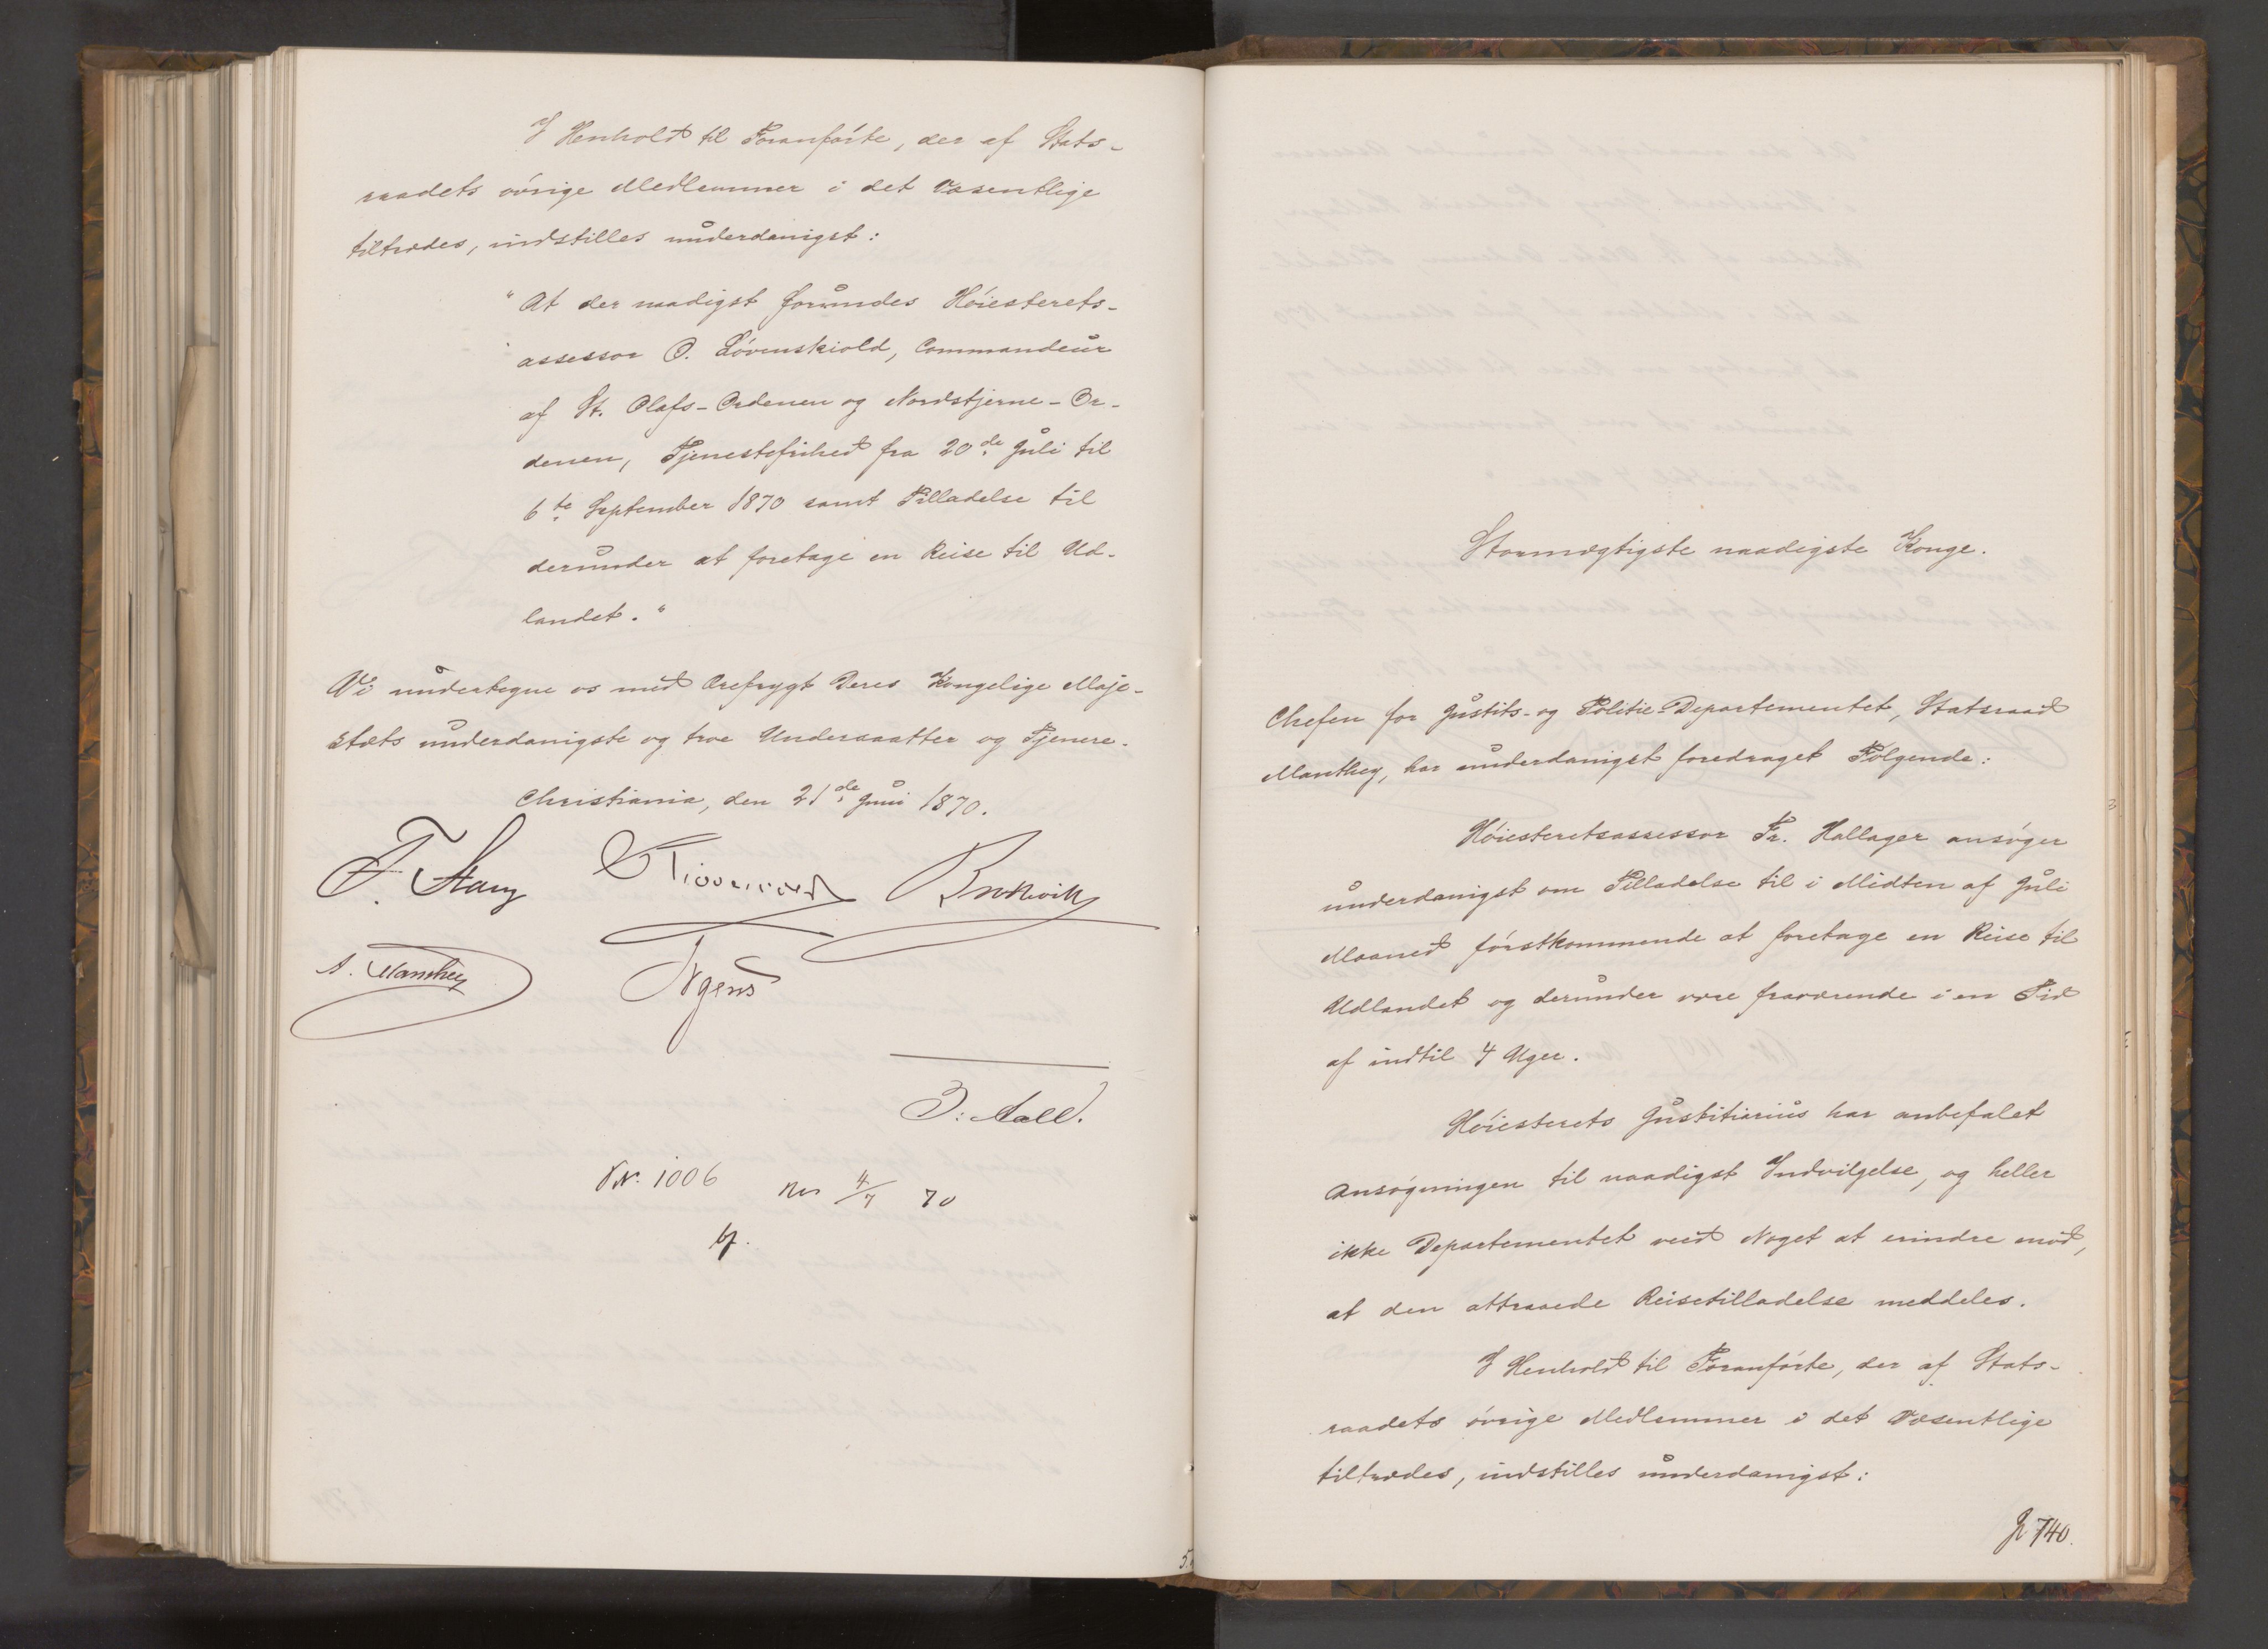 I Henhold til Foranførte, der af Stats-
raadets øvrige Medlemmer i det Væsentlige
tiltrædes, indstilles underdanigst:
"At der naadigst forundes Høiesterets-
"assessor O. Løvenskiold, Commandeur
af St. Olafs-Ordenen og Nordstjerne-Or-
denen, Tjenestefrihed fra 20de Juli til
6te September 1870 samt Tilladelse til
derunder at foretage en Reise til Ud-
landet."
Vi undertegne os med Ærefrygt Deres Kongelige Maje-
stæts underdanigste og troe Undersaatter og Tjenere.
Christiania, den 21de Juni 1870.
F. Stang
A. Manthey
J. Aall.
No. 1006 Res 4/7 70
Stormægtigste naadigste Konge.
Chefen for Justits- og Politie-Departementet, Statsraad
Manthey, har underdanigst foredraget Følgende:
Høiesteretsassessor Fr. Hallager ansøger
underdanigst om Tilladelse til i Midten af Juli
Maaned førstkommende at foretage en Reise til
Udlandet og derunder være fraværende i en Tid
af indtil 4 Uger.
Høiesterets Justitiarius har anbefalet
Ansøgningen til naadigst Indvilgelse, og heller
ikke Departementet veed Noget at erindre mod,
at den attraaede Reisetilladelse meddeles.
I Henhold til Foranførte, der af Stats-
raadets øvrige Medlemmer i det Væsentlige
tiltrædes, indstilles underdanigst:
J 740.